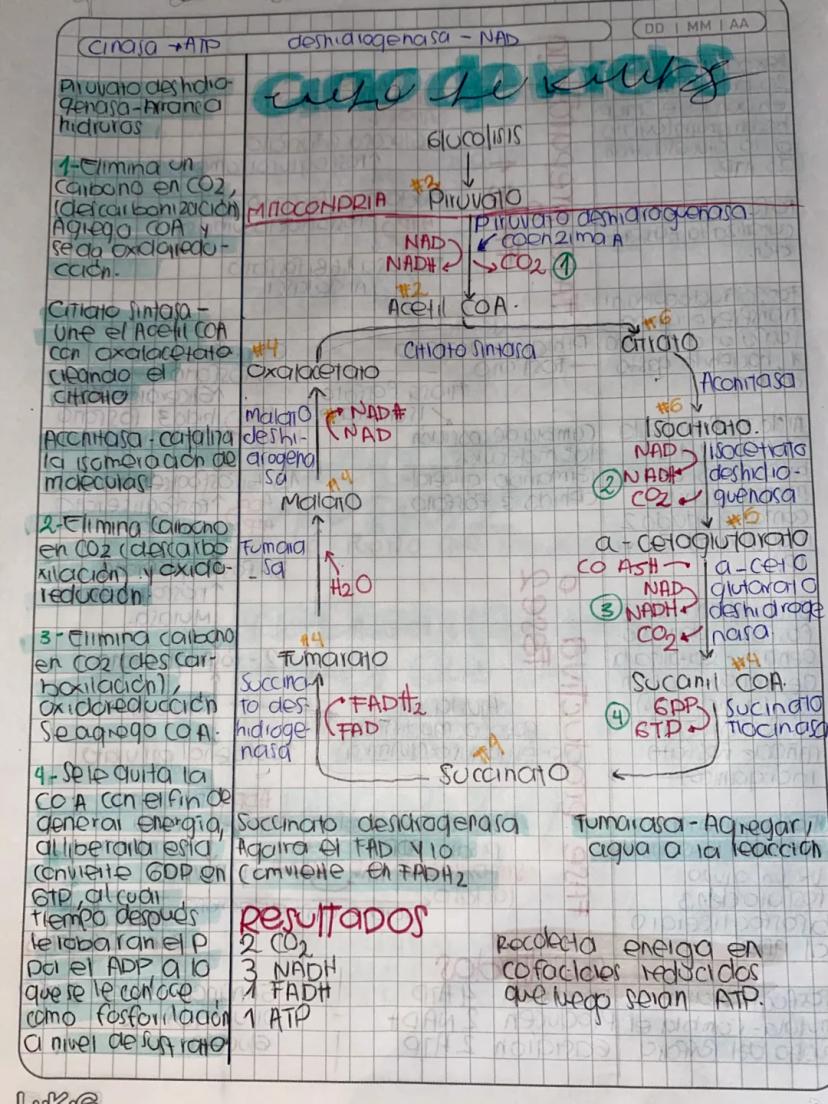 DD | MM | AA
cinasa →ATP
deshidrogenasa - NAD
Ciclo de Krebs
Piruvato deshidro-
genasa-Arranca
hidruros
1-Elimina un
carbono en CO2,
(descarbonización)
Agrego COA y
se da oxidaredu-
cción.
Citrato sintasa-
une el Acetil COA
con oxalacetato
creando el
citrato
Acchitasa-cataliza
la isomeración de
moléculas
2-Elimina carbono
en CO2 (descarbo
xilación) y oxido-
reducción
3-Elimina carbono
en CO2 (descar-
boxilación),
oxidoreducción
Se agrego COA.
4-Se le quita la
COA con el fin de
generar energía,
al liberarla esta
convierte GDP en
GTP, al cual
tiempo después
le robaran el P
por el ADP, a lo
que se le conoce
como fosforilación
a nivel de sustrato
Glucolisis
#3
Piruvato
MITOCONDRIA
Piruvato deshidrogenasa
NAD
coenzima A
NADH
CO2 1
#2
Acetil COA.
#6
Citrato
Citrato sintasa
#4
Oxalacetato
Aconitasa
#6
Isocitrato.
Malato
deshi-
drogena
sa
NADH
NAD
NAD
2 NADH
CO2
isocetrato
deshidro-
guenasa
#4
Malato
#5
a-cetoglutarato
Fumara
-sa
H2O
CO ASH
NAD
3 NADH
CO2
a-ceto
glutarato
deshidroge
nasa
#4
Fumarato
#4
Sucanil COA.
Succina
to des-
hidroge-
nasa
FADH2
FAD
4 GDP
GTP
sucinato
tiocinasa
#4
Succinato
Succinato desidrogenasa
Agarra el FAD y lo
convierte en FADH2
Fumarasa-Agregar
agua a la reacción
RESULTADOS
2 CO2
3 NADH
1 FADH
1 ATP
Recolecta energia en
cofactores reducidos
que luego seran ATP.